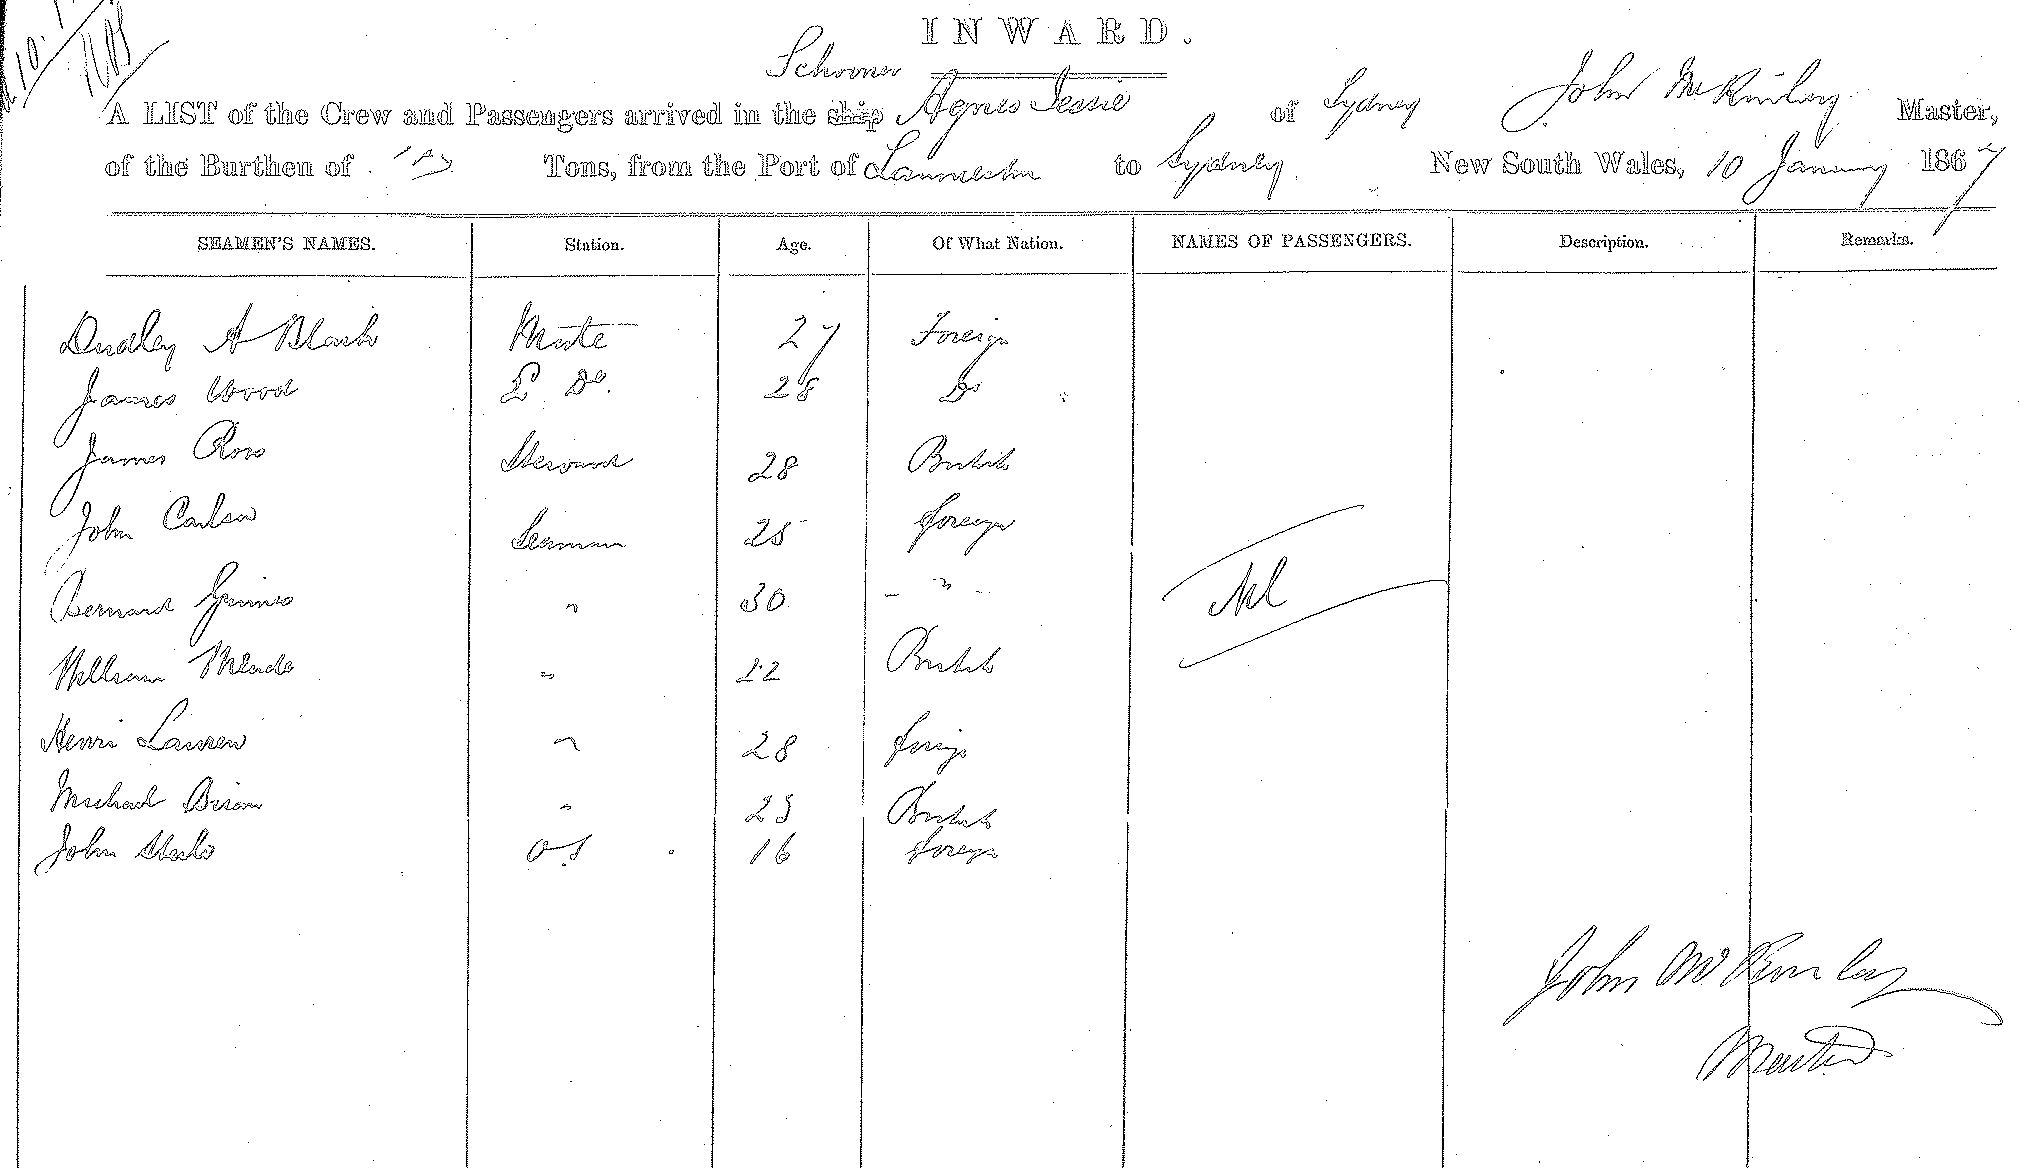 INWARD.
Schooner
A LIST of the Crew and Passengers arrived in the ship Agnes Jessie of Sydney John McKinlay Master,
of the Burthen of Tons, from the Port of Launceston to Sydney New South Wales, 10 January 1867
SEAMEN'S NAMES. Station. Age. Of What Nation. NAMES OF PASSENGERS. Description. Remarks.
Dudley A Mate 27 Foreign
James Wood 2 Do. 28 Do
James Ross Steward 28 British
John Carlson Seaman 25 foreign
Bernard Grimes " 30 - " -
Nil
William " British
Henri " 28 foreign
Michael " British
John OS 16 foreign
John McKinlay
Master